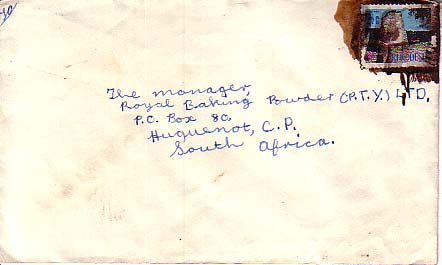 The manager,
Royal Baking Powder (P.T.Y.) LTD.
P.O. Box 80.
Huguenot, C.P.
South Africa.